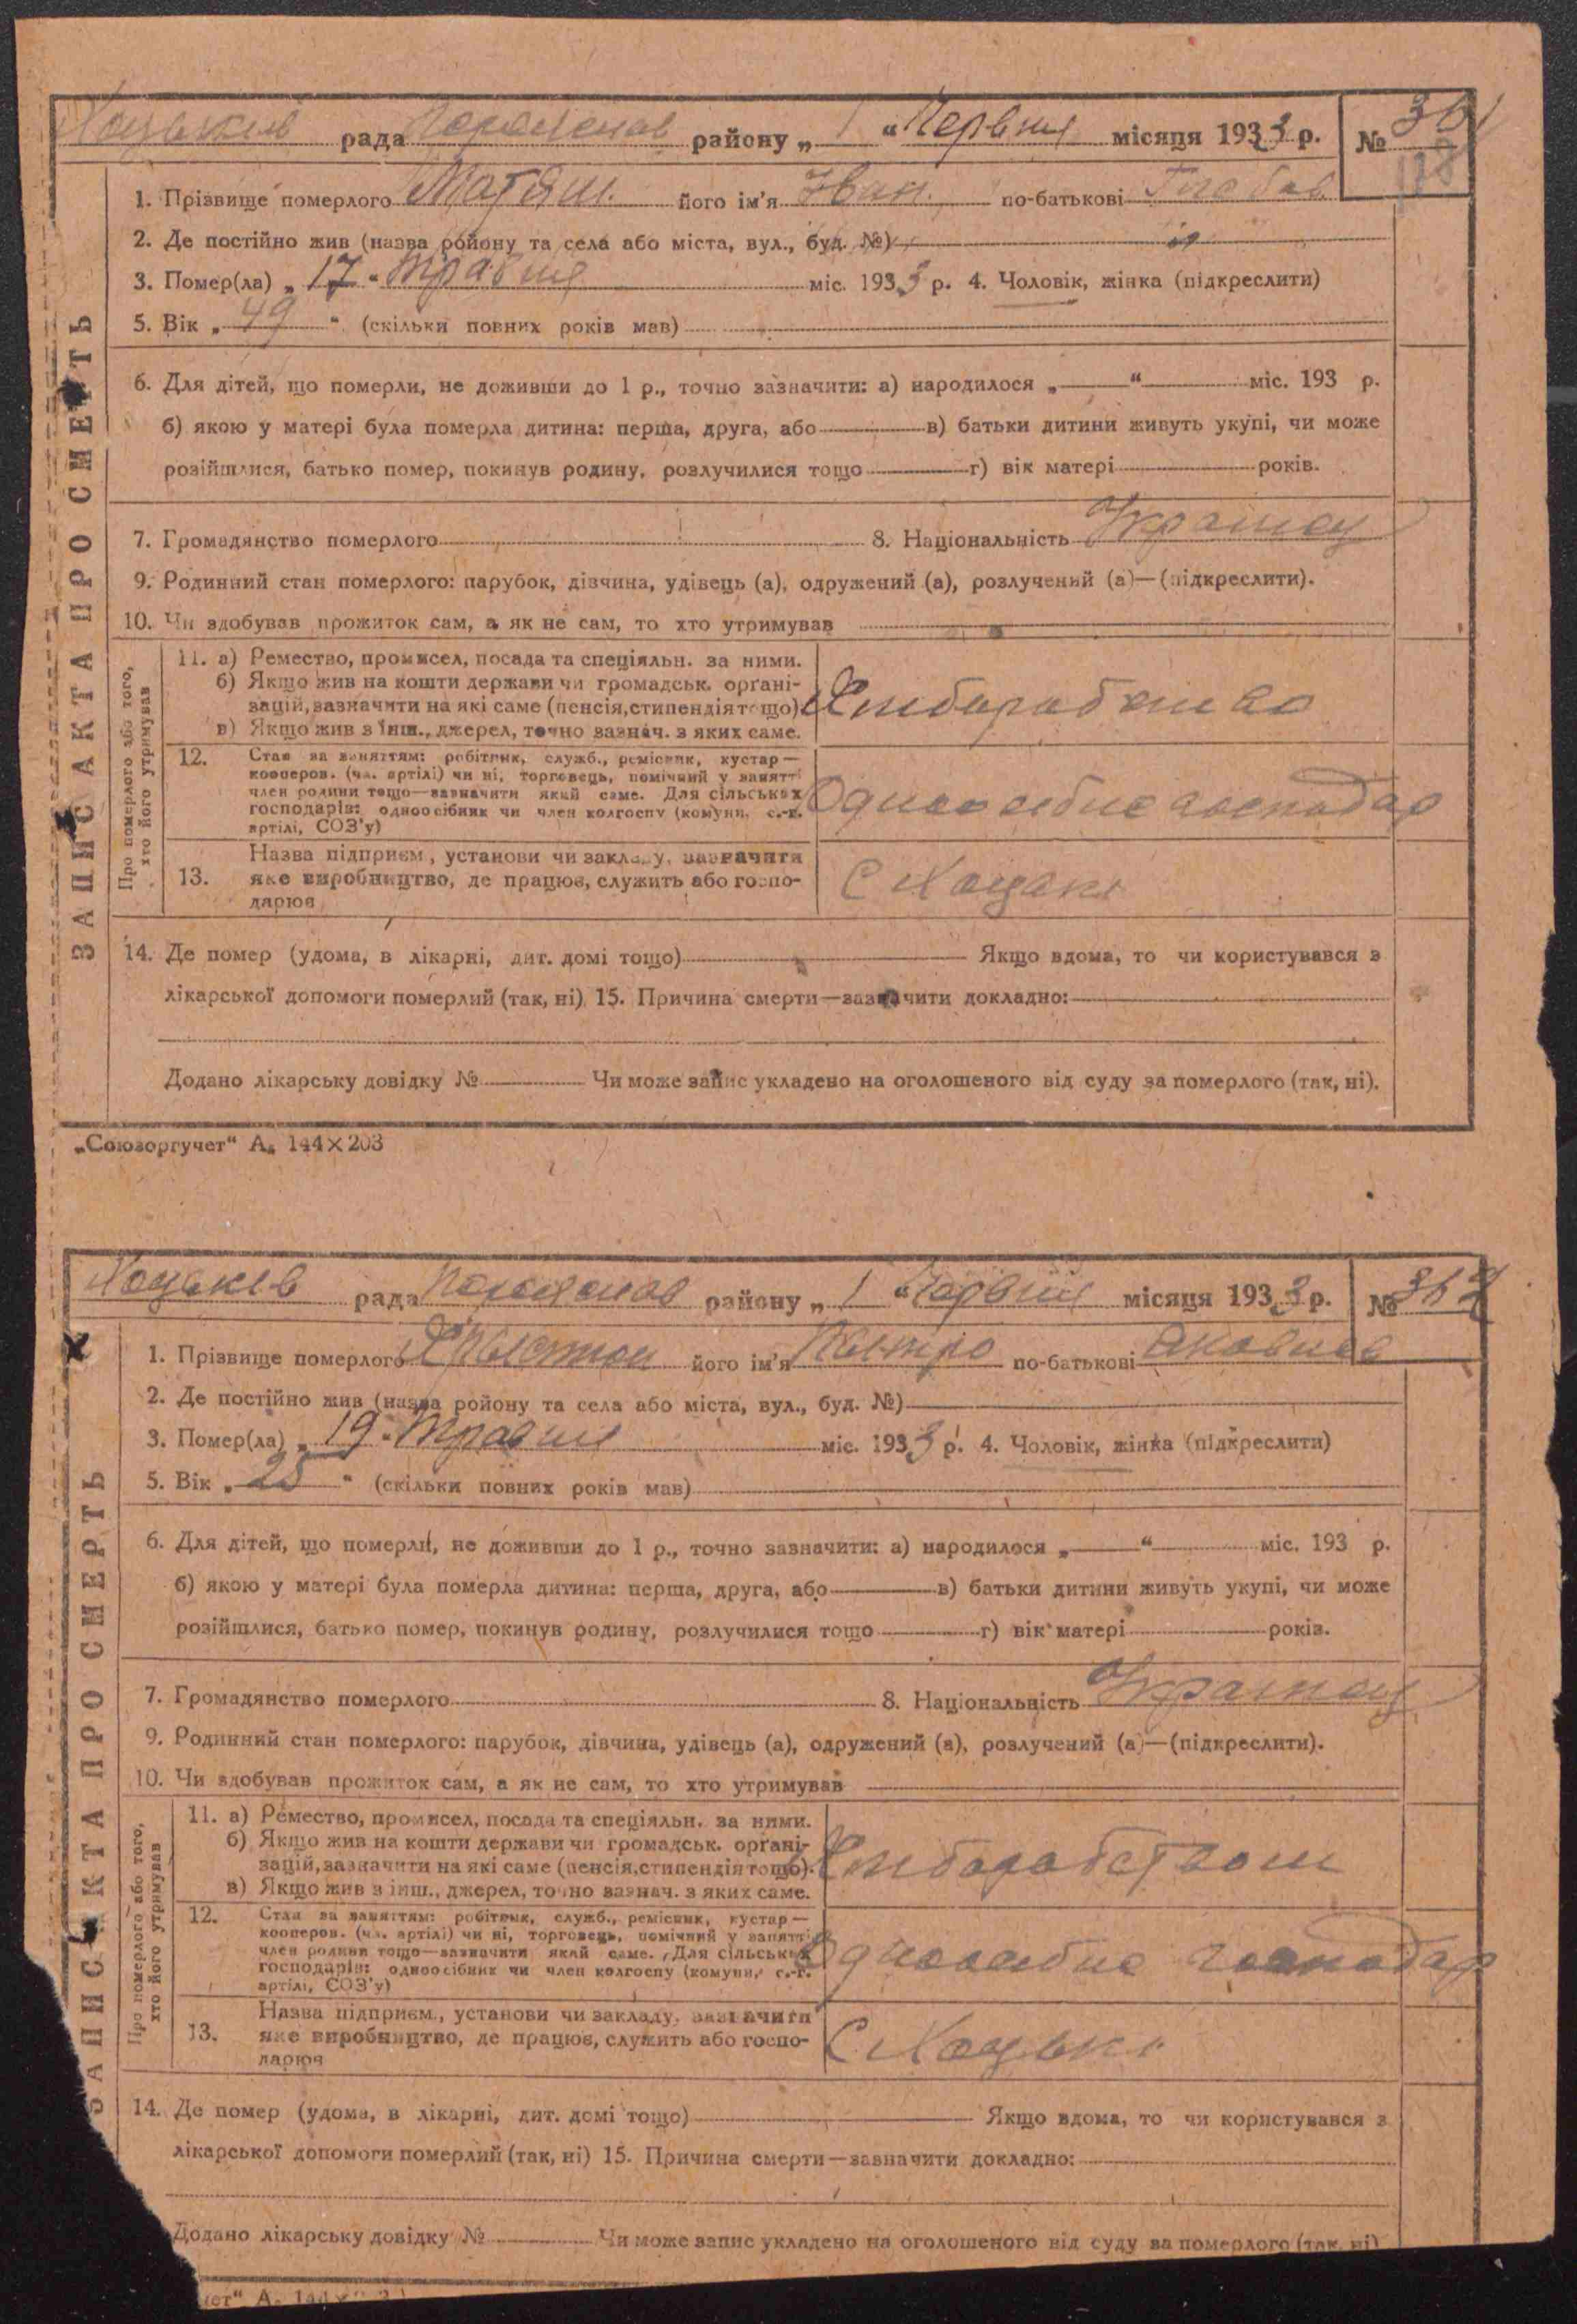 Хоцьків рада Переяслав району „ 1 “ Червня місяця 1933 р. № 361
118
1. Прізвище померлого Матяш його ім'я Іван по-батькові
2. Де постійно жив (назва ройону та села або міста, вул., буд. №)
3. Помер(ла) „ 17 “ Травня міс. 1933 р. 4. Чоловік, жінка (підкреслити)
5. Вік „ 49 “ (скільки повних років мав)
6. Для дітей, що померли, не доживши до 1 р., точно зазначити: а) народилося „ “ міс. 193 р.
б) якою у матері була померла дитина: перша, друга, або в) батьки дитини живуть укупі, чи може
розійшлися, батько помер, покинув родину, розлучилися тощо г) вік матері років.
7. Громадянство померлого 8. Національність Україноц
9. Родинний стан померлого: парубок, дівчина, удівець (а), одружений (а), розлучений (а)—(підкреслити).
10. Чи здобував прожиток сам, а як не сам, то хто утримував
ЗАПИС АКТА ПРО СМЕРТЬ
Про померлого або того, хто його утримував
11. а) Ремество, промисел, посада та спеціяльн. за ними.
б) Якщо жив на кошти держави чи громадськ. органі-
зацій, зазначити на які саме (пенсія, стипендія тощо).
в) Якщо жив з інш., джерел, точно зазнач. з яких саме.
12. Стан за заняттям: робітник, служб., ремісник, кустар—
кооперов. (чл. артілі) чи ні, торговець, помічний у занятті
член родини тощо—зазначити який саме. Для сільських
господарів: одноосібник чи член колгоспу (комуни, с.-г.
артілі, СОЗ'у)
Одноосебне господар
Назва підприєм., установи чи закладу, зазначити
13. яке виробництво, де працює, служить або госпо-
дарює
С Хоцьки
14. Де помер (удома, в лікарні, дит. домі тощо) Якщо вдома, то чи користувався з
лікарської допомоги померлий (так, ні) 15. Причина смерти—зазначити докладно:
Додано лікарську довідку № Чи може запис укладено на оголошеного від суду за померлого (так, ні).
„Союзоргучет“ А₅ 144×203
Хоцьків рада Переяслав району „ 1 “ Червня місяця 1933 р. № 362
1. Прізвище померлого його ім'я Петро по-батькові Яковлев
2. Де постійно жив (назва ройону та села або міста, вул., буд. №)
3. Помер(ла) „ 19 “ Травня міс. 1933 р. 4. Чоловік, жінка (підкреслити)
5. Вік „ 25 “ (скільки повних років мав)
6. Для дітей, що померли, не доживши до 1 р., точно зазначити: а) народилося „ “ міс. 193 р.
б) якою у матері була померла дитина: перша, друга, або в) батьки дитини живуть укупі, чи може
розійшлися, батько помер, покинув родину, розлучилися тощо г) вік матері років.
7. Громадянство померлого 8. Національність Україноц
9. Родинний стан померлого: парубок, дівчина, удівець (а), одружений (а), розлучений (а)—(підкреслити).
10. Чи здобував прожиток сам, а як не сам, то хто утримував
ЗАПИС АКТА ПРО СМЕРТЬ
Про померлого або того, хто його утримував
11. а) Ремество, промисел, посада та спеціяльн. за ними.
б) Якщо жив на кошти держави чи громадськ. органі-
зацій, зазначити на які саме (пенсія, стипендія тощо).
в) Якщо жив з інш., джерел, точно зазнач. з яких саме.
Хлібоработвом
12. Стан за заняттям: робітник, служб., ремісник, кустар—
кооперов. (чл. артілі) чи ні, торговець, помічний у занятті
член родини тощо—зазначити який саме. Для сільських
господарів: одноосібник чи член колгоспу (комуни, с.-г.
артілі, СОЗ'у)
Одноосебне господар
Назва підприєм., установи чи закладу, зазначити
13. яке виробництво, де працює, служить або госпо-
дарює
С Хоцьки
14. Де помер (удома, в лікарні, дит. домі тощо) Якщо вдома, то чи користувався з
лікарської допомоги померлий (так, ні) 15. Причина смерти—зазначити докладно:
Додано лікарську довідку № Чи може запис укладено на оголошеного від суду за померлого (так, ні)